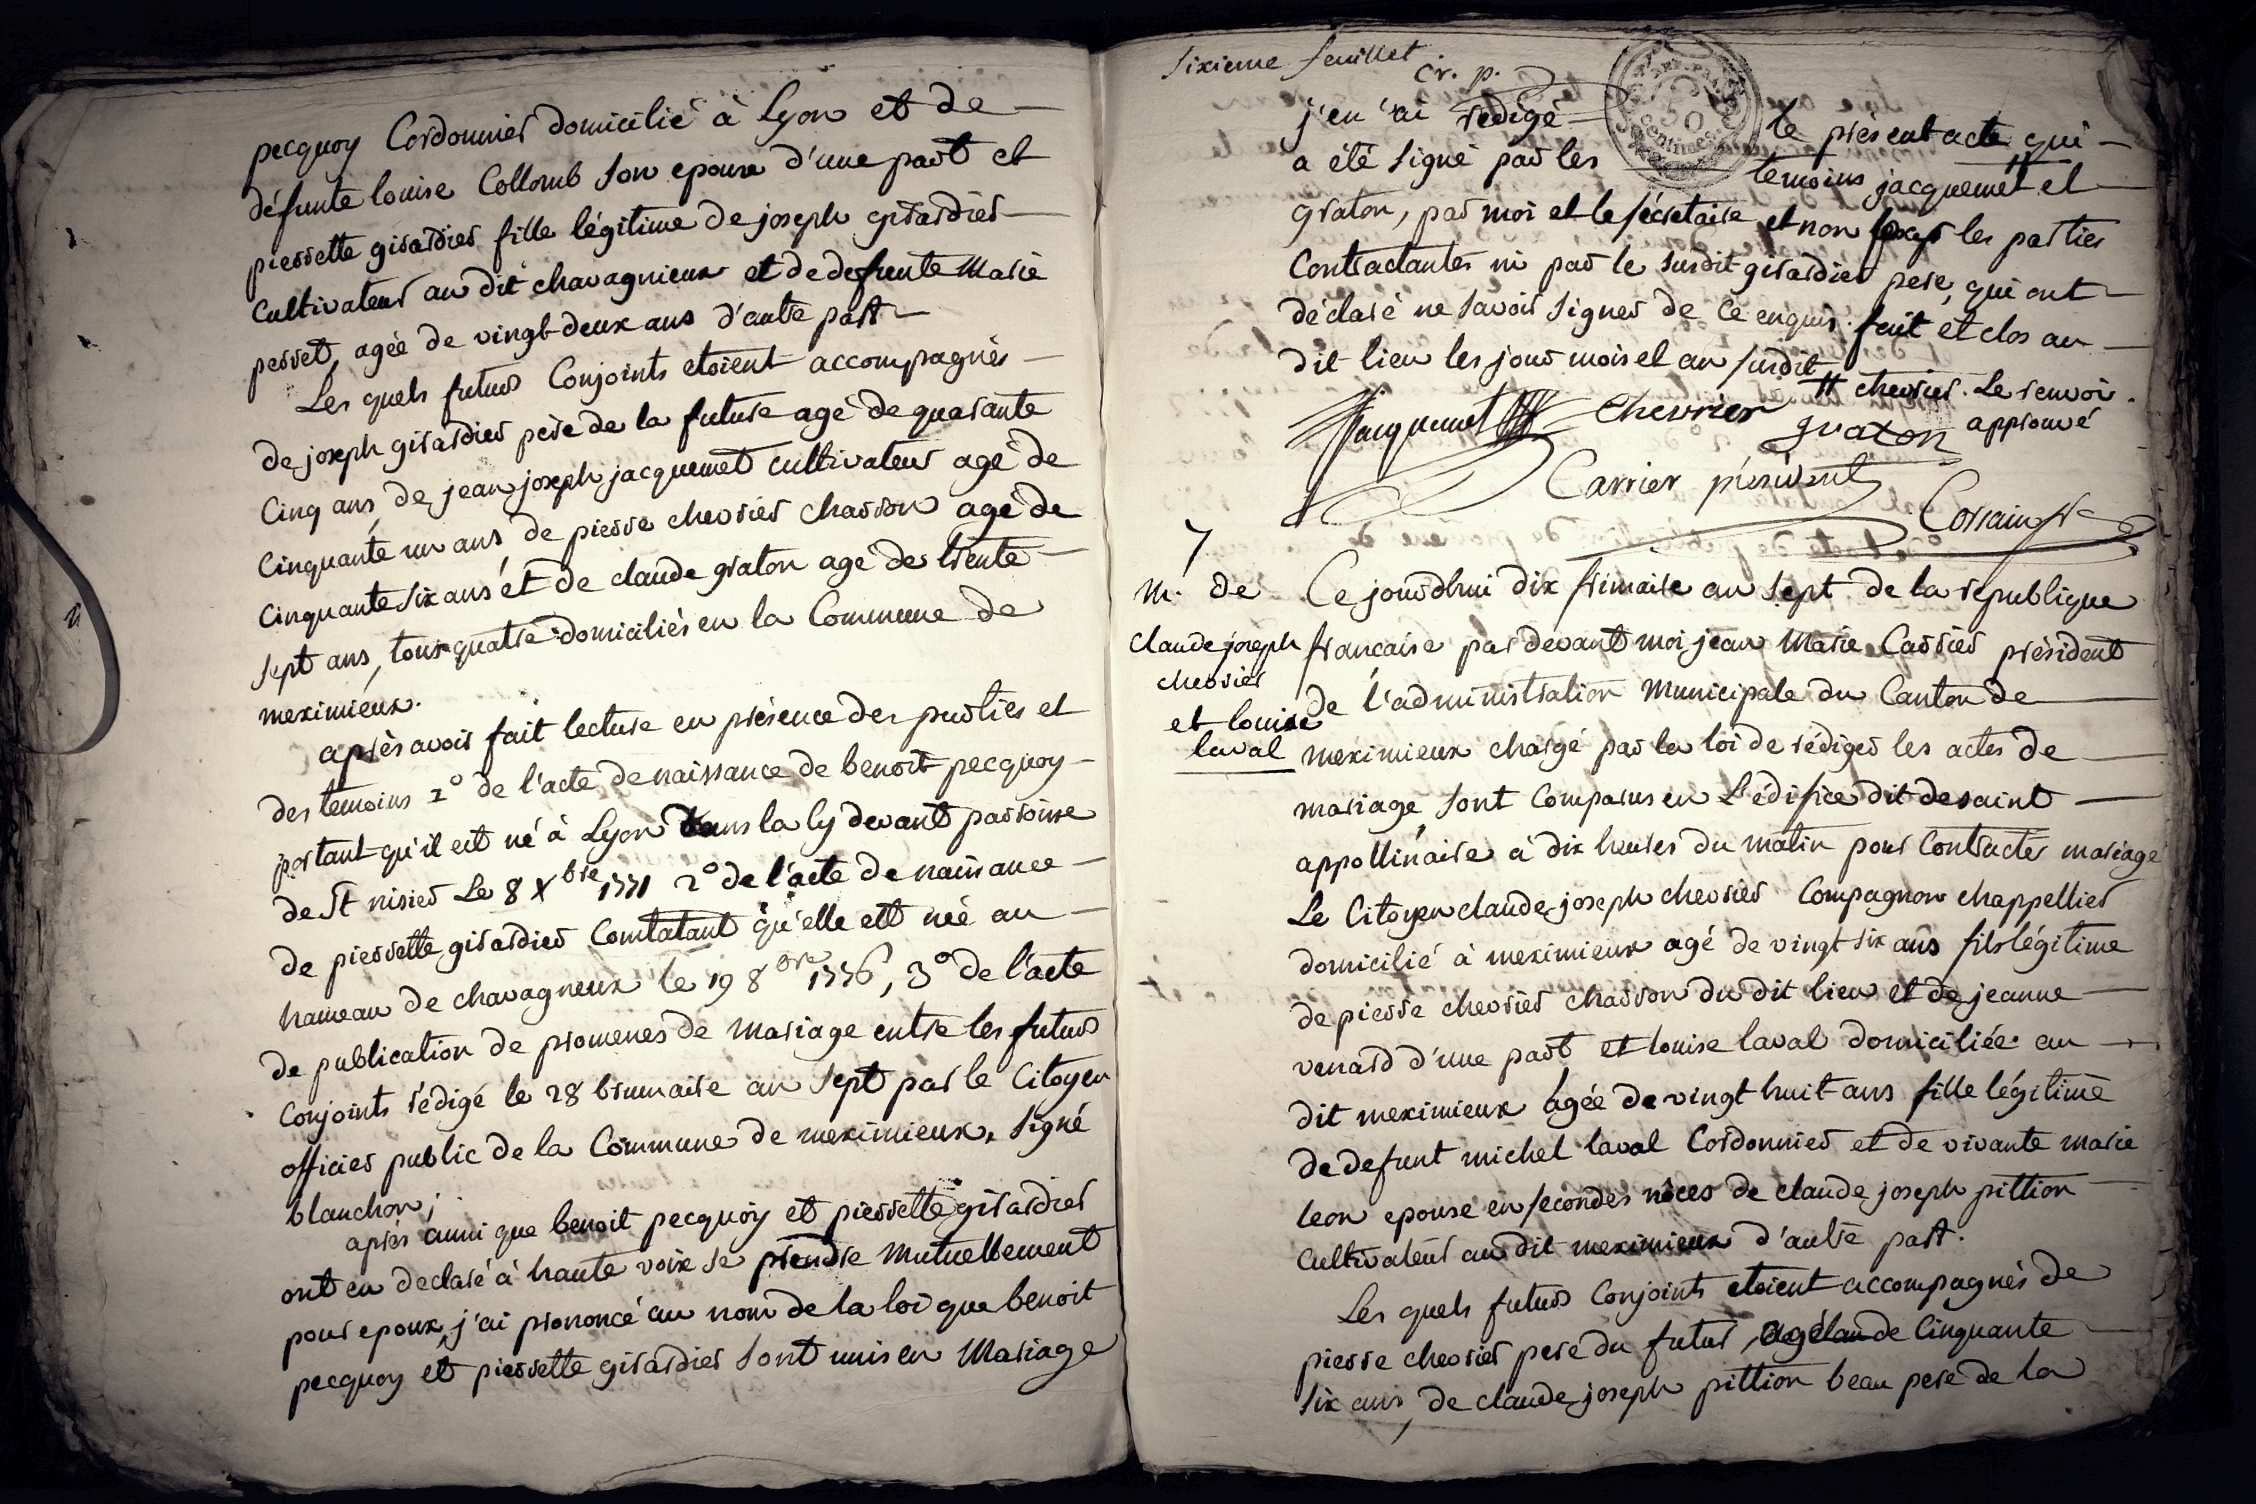 pecquoy Cordonnier domicilié à Lyon et de
défunte louise Collomb son epouse d'une part et
pierrette girardier fille légitime de joseph girardier
Cultivateur au dit chavagnieux et de defunte Marie
perret, agée de vingt-deux ans d'autre part
Les quels futurs Conjoints etoient accompagnés
de joseph girardier père de la future agé de quarante
Cinq ans, de jean joseph jacquemet cultivateur agé de
Cinquante un ans de pierre chevrier charron agé de
Cinquante six ans et de claude graton agé de trente
sept ans, tous quatre domiciliés en la Commune de
meximieux.
après avoir fait lecture en présence des parties et
des temoins 1° de l'acte de naissance de benoit pecquoy
portant qu'il est né à Lyon dans la cy devant paroisse
de St nisier Le 8 Xbre 1771 2° de l'acte de naissance
de pierrette girardier Constatant qu'elle est née au
hameau de chavagneux le 19 8bre 1776, 3° de l'acte
de publication de promesses de mariage entre les futurs
Conjoints rédigé le 28 brumaire an sept par le Citoyen
officier public de la Commune de meximieux, signé
blanchon;
après aussi que benoit pecquoy et pierrette girardier
ont eu declaré à haute voix se prendre Mutuellement
pour epoux, j'ai prononcé au nom de la loi que benoit
pecquoy et pierrette girardier sont unis en Mariage
Sixieme feuillet
Cr. p.
50 centimes
j'en ai redigé le présent acte qui
a été signé par les temoins jacquemet et
graton, par moi et le sécretaire et non les parties
Contractantes ni par le susdit girardier pere, qui ont
déclaré ne savoir signer de Ce enquis. fait et clos au
dit lieu les jour mois et an susdit
chevrier. Le renvoi
approuvé
Jacquemet chevrier graton
Carrier président
7
M. de
claude joseph
chevrier
et louise
laval
Ce jourdhui dix frimaire an sept de la republique
francaise par devant moi jean Marie Carrier président
de l'administration Municipale du Canton de
meximieux chargé par la loi de rédiger les actes de
mariage sont Comparus en L'édifice dit de saint
appollinaire à dix heures du matin pour Contracter mariage
Le Citoyen claude joseph chevrier Compagnon chappellier
domicilié à meximieux agé de vingt six ans fils légitime
de pierre chevrier charron du dit lieu et de jeanne
venard d'une part et louise laval domiciliée au
dit meximieux agée de vingt huit ans fille légitime
de defunt michel laval Cordonnier et de vivante marie
leon epouse en secondes nôces de claude joseph pittion
Cultivateur au dit meximieux d'autre part.
Les quels futurs Conjoints etoient accompagnés de
pierre chevrier pere du futur, agé de Cinquante
six ans, de claude joseph pittion beau pere de la